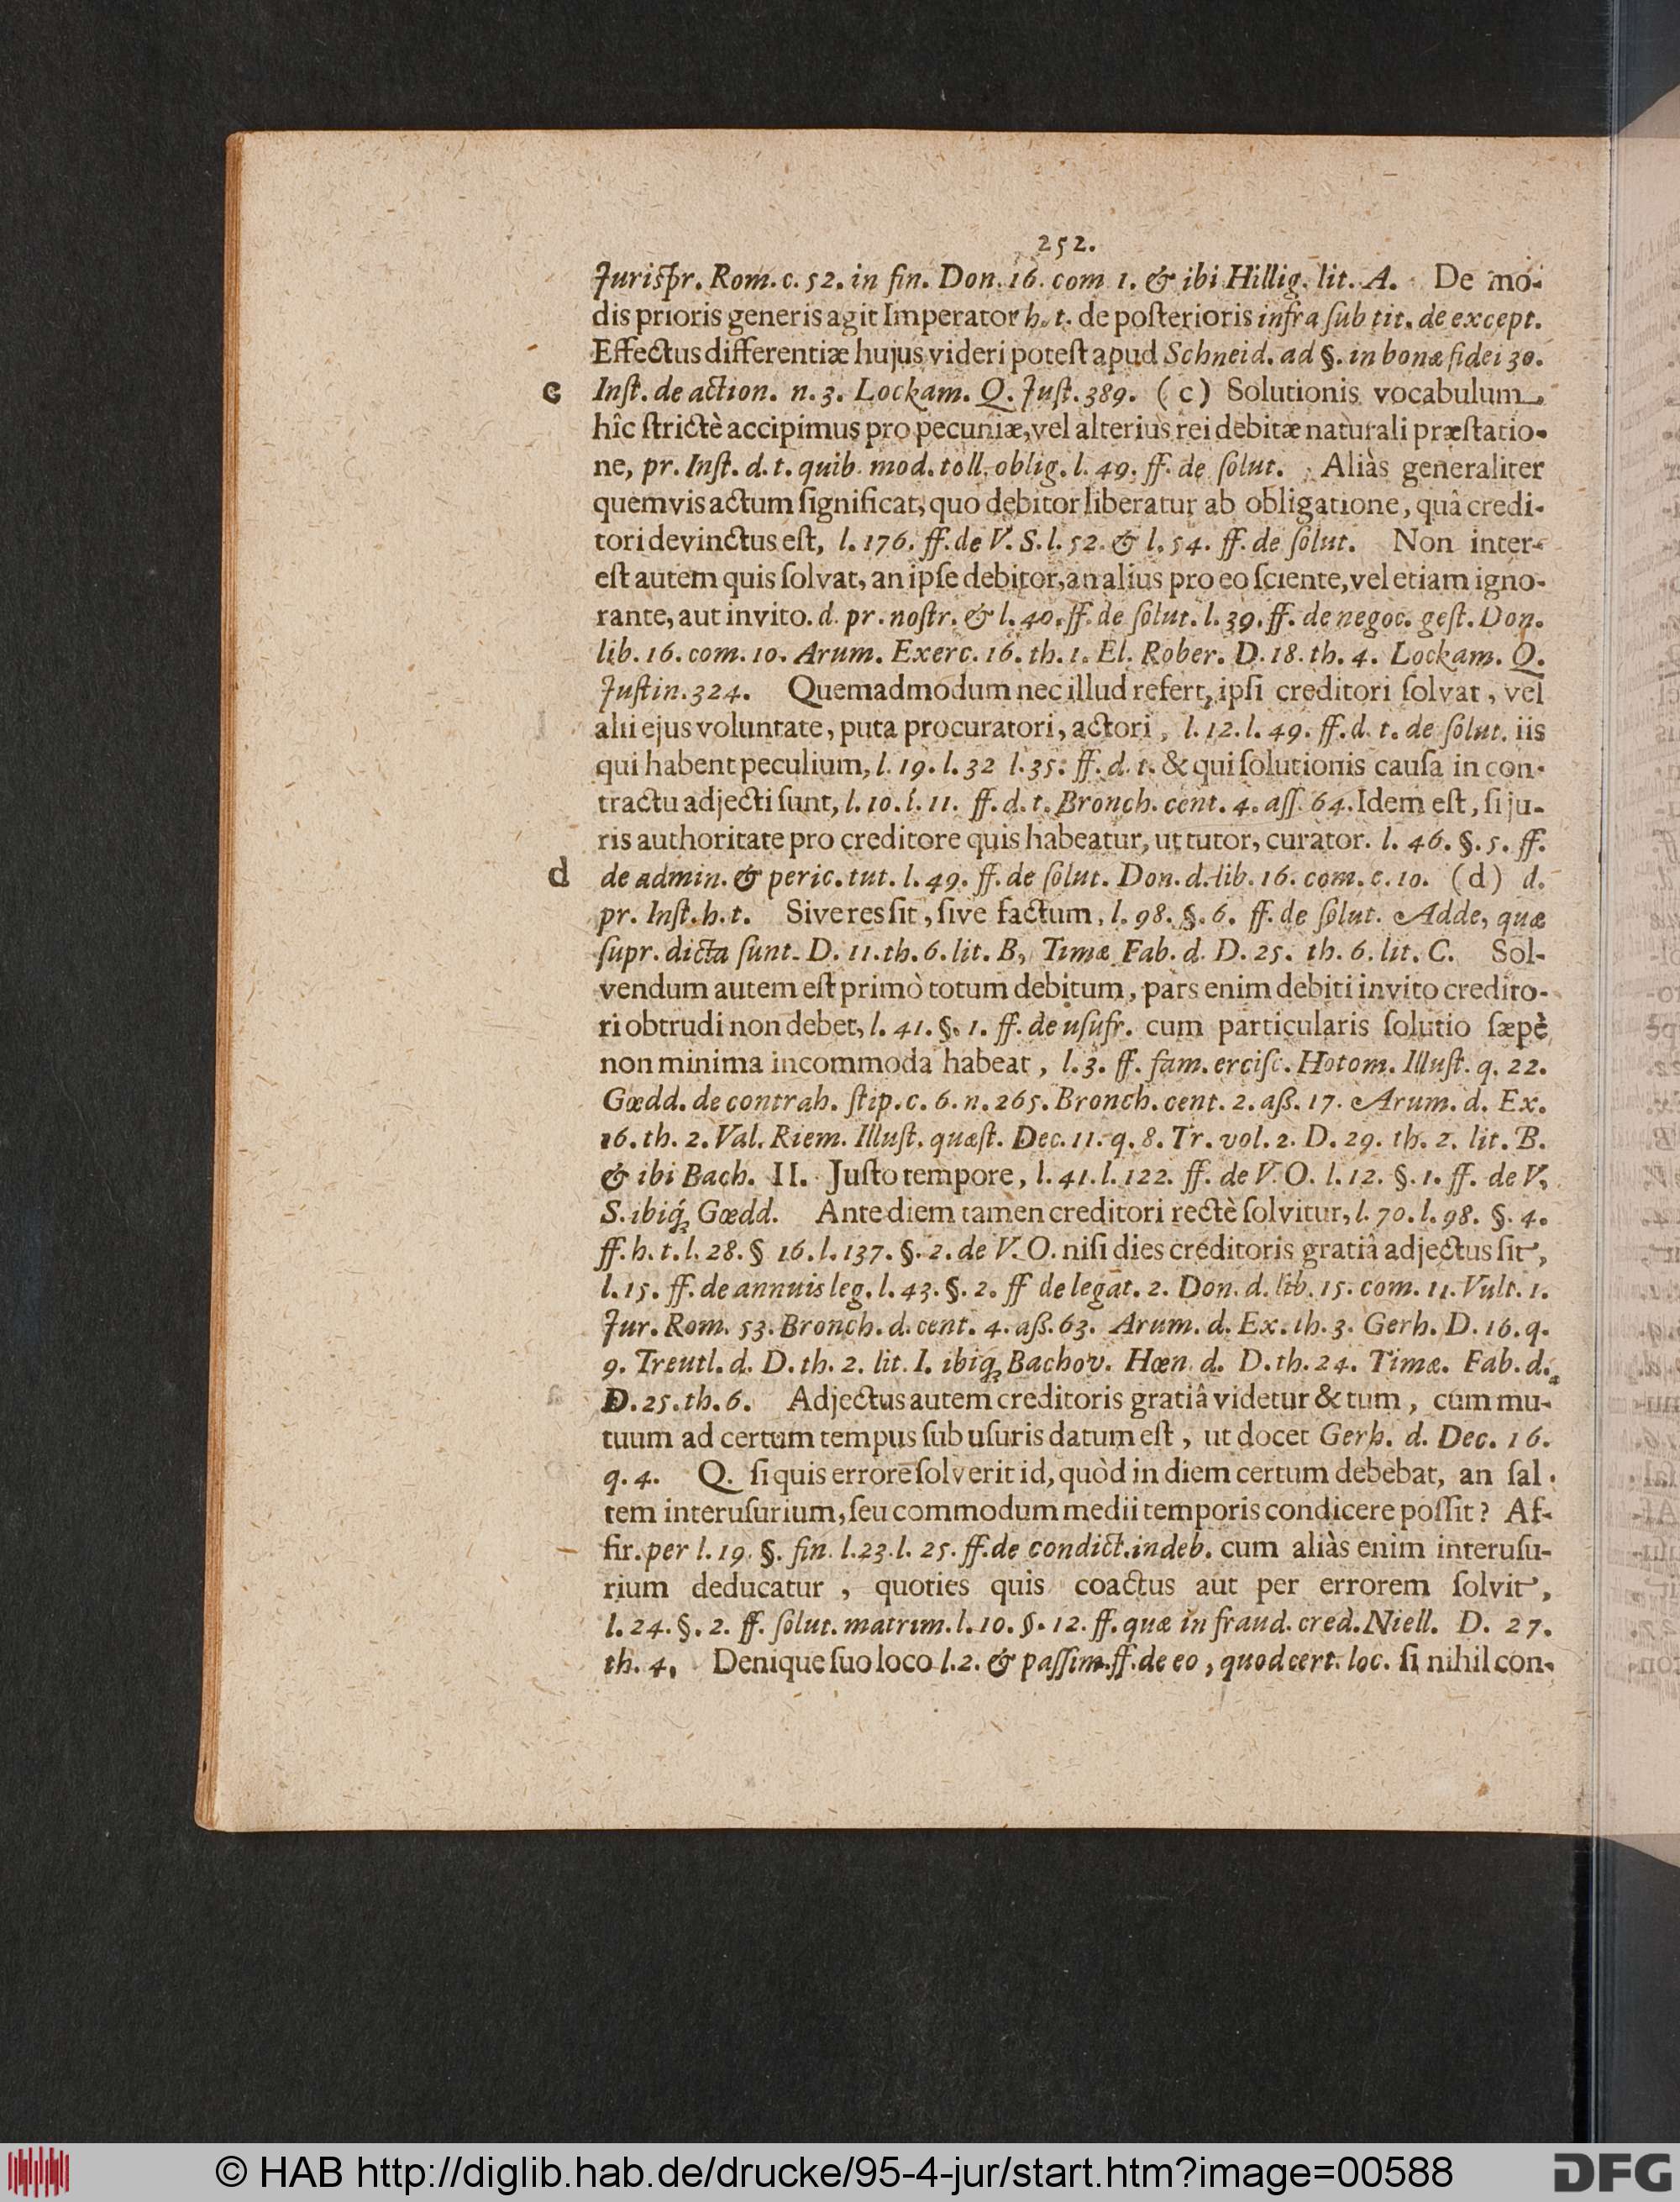 252.
Jurispr. Rom. c. 52. in fin. Don. 16. com 1. & ibi Hillig. lit. A. De mo-
dis prioris generis agit Imperator h. t. de posterioris infra sub tit. de except.
Effectus differentiæ hujus videri potest apud Schneid. ad §. in bonæ fidei 30.
c Inst. de action. n. 3. Lockam. Q. Just. 389. (c) Solutionis vocabulum
hîc strictè accipimus pro pecuniæ, vel alterius rei debitæ naturali præstatio-
ne, pr. Inst. d. t. quib. mod. toll. oblig. l. 49. ff. de solut. Aliàs generaliter
quemvis actum significat, quo debitor liberatur ab obligatione, quâ credi-
tori devinctus est, l. 176. ff. de V. S. l. 52. & l. 54. ff. de solut. Non inter-
est autem quis solvat, an ipse debitor, an alius pro eo sciente, vel etiam igno-
rante, aut invito. d. pr. nostr. & l. 40. ff. de solut. l. 39. ff. de negoc. gest. Don.
lib. 16. com. 10. Arum. Exerc. 16. th. 1. El. Rober. D. 18. th. 4. Lockam. Q.
Justin. 324. Quemadmodum nec illud refert, ipsi creditori solvat, vel
alii ejus voluntate, puta procuratori, actori, l. 12. l. 49. ff. d. t. de solut. iis
qui habent peculium, l. 19. l. 32 l. 35. ff. d. t. & qui solutionis causa in con-
tractu adjecti sunt, l. 10. l. 11. ff. d. t. Bronch. cent. 4. ass. 64. Idem est, si ju-
ris authoritate pro creditore quis habeatur, ut tutor, curator. l. 46. §. 5. ff.
d de admin. & peric. tut. l. 49. ff. de solut. Don. d. lib. 16. com. c. 10. (d) d.
pr. Inst. h. t. Sive res sit, sive factum, l. 98. §. 6. ff. de solut. Adde, quæ
supr. dicta sunt. D. 11. th. 6. lit. B, Timæ Fab. d. D. 25. th. 6. lit. C. Sol-
vendum autem est primò totum debitum, pars enim debiti invito credito-
ri obtrudi non debet, l. 41. §. 1. ff. de usufr. cum particularis solutio sæpè
non minima incommoda habeat, l. 3. ff. fam. ercisc. Hotom. Illust. q. 22.
Gœdd. de contrah. stip. c. 6. n. 265. Bronch. cent. 2. aß. 17. Arum. d. Ex.
16. th. 2. Val. Riem. Illust. quæst. Dec. 11. q. 8. Tr. vol. 2. D. 29. th. 2. lit. B.
& ibi Bach. II. Justo tempore, l. 41. l. 122. ff. de V. O. l. 12. §. 1. ff. de V,
S. ibiq; Gœdd. Ante diem tamen creditori rectè solvitur, l. 70. l. 98. §. 4.
ff. h. t. l. 28. § 16. l. 137. §. 2. de V. O. nisi dies creditoris gratiâ adjectus sit,
l. 15. ff. de annuis leg. l. 43. §. 2. ff de legat. 2. Don. d. lib. 15. com. 11. Vult. 1.
Jur. Rom. 53. Bronch. d. cent. 4. aß. 63. Arum. d. Ex. th. 3. Gerh. D. 16. q.
9. Treutl. d. D. th. 2. lit. I. ibiq; Bachov. Hœn. d. D. th. 24. Timæ. Fab. d.
D. 25. th. 6. Adjectus autem creditoris gratiâ videtur & tum, cum mu-
tuum ad certum tempus sub usuris datum est, ut docet Gerh. d. Dec. 16.
q. 4. Q. si quis errore solverit id, quòd in diem certum debebat, an sal-
tem interusurium, seu commodum medii temporis condicere possit? Af-
fir. per l. 19. §. fin. l. 23. l. 25. ff. de condict. indeb. cum aliàs enim interusu-
rium deducatur, quoties quis coactus aut per errorem solvit,
l. 24. §. 2. ff. solut. matrim. l. 10. §. 12. ff. quæ in fraud. cred. Niell. D. 27.
th. 4, Denique suo loco l. 2. & passim. ff. de eo, quod cert. loc. si nihil con-
© HAB http://diglib.hab.de/drucke/95-4-jur/start.htm?image=00588
DFG